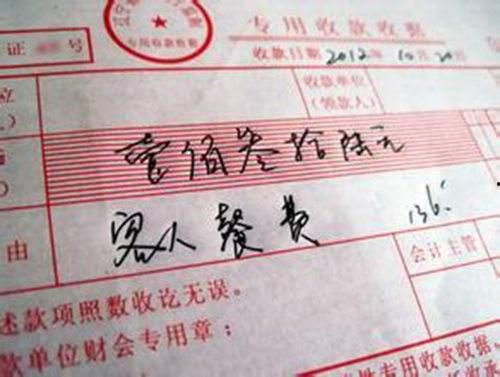 专用收款收据
专用收款收据
证 号
收款日期 2012年10月20日
收款单位
(领款人)
壹佰叁拾陆元
由 客人餐费 136.
会计主管
述款项照数收讫无误。
款单位财会专用章:
性专用收款收据